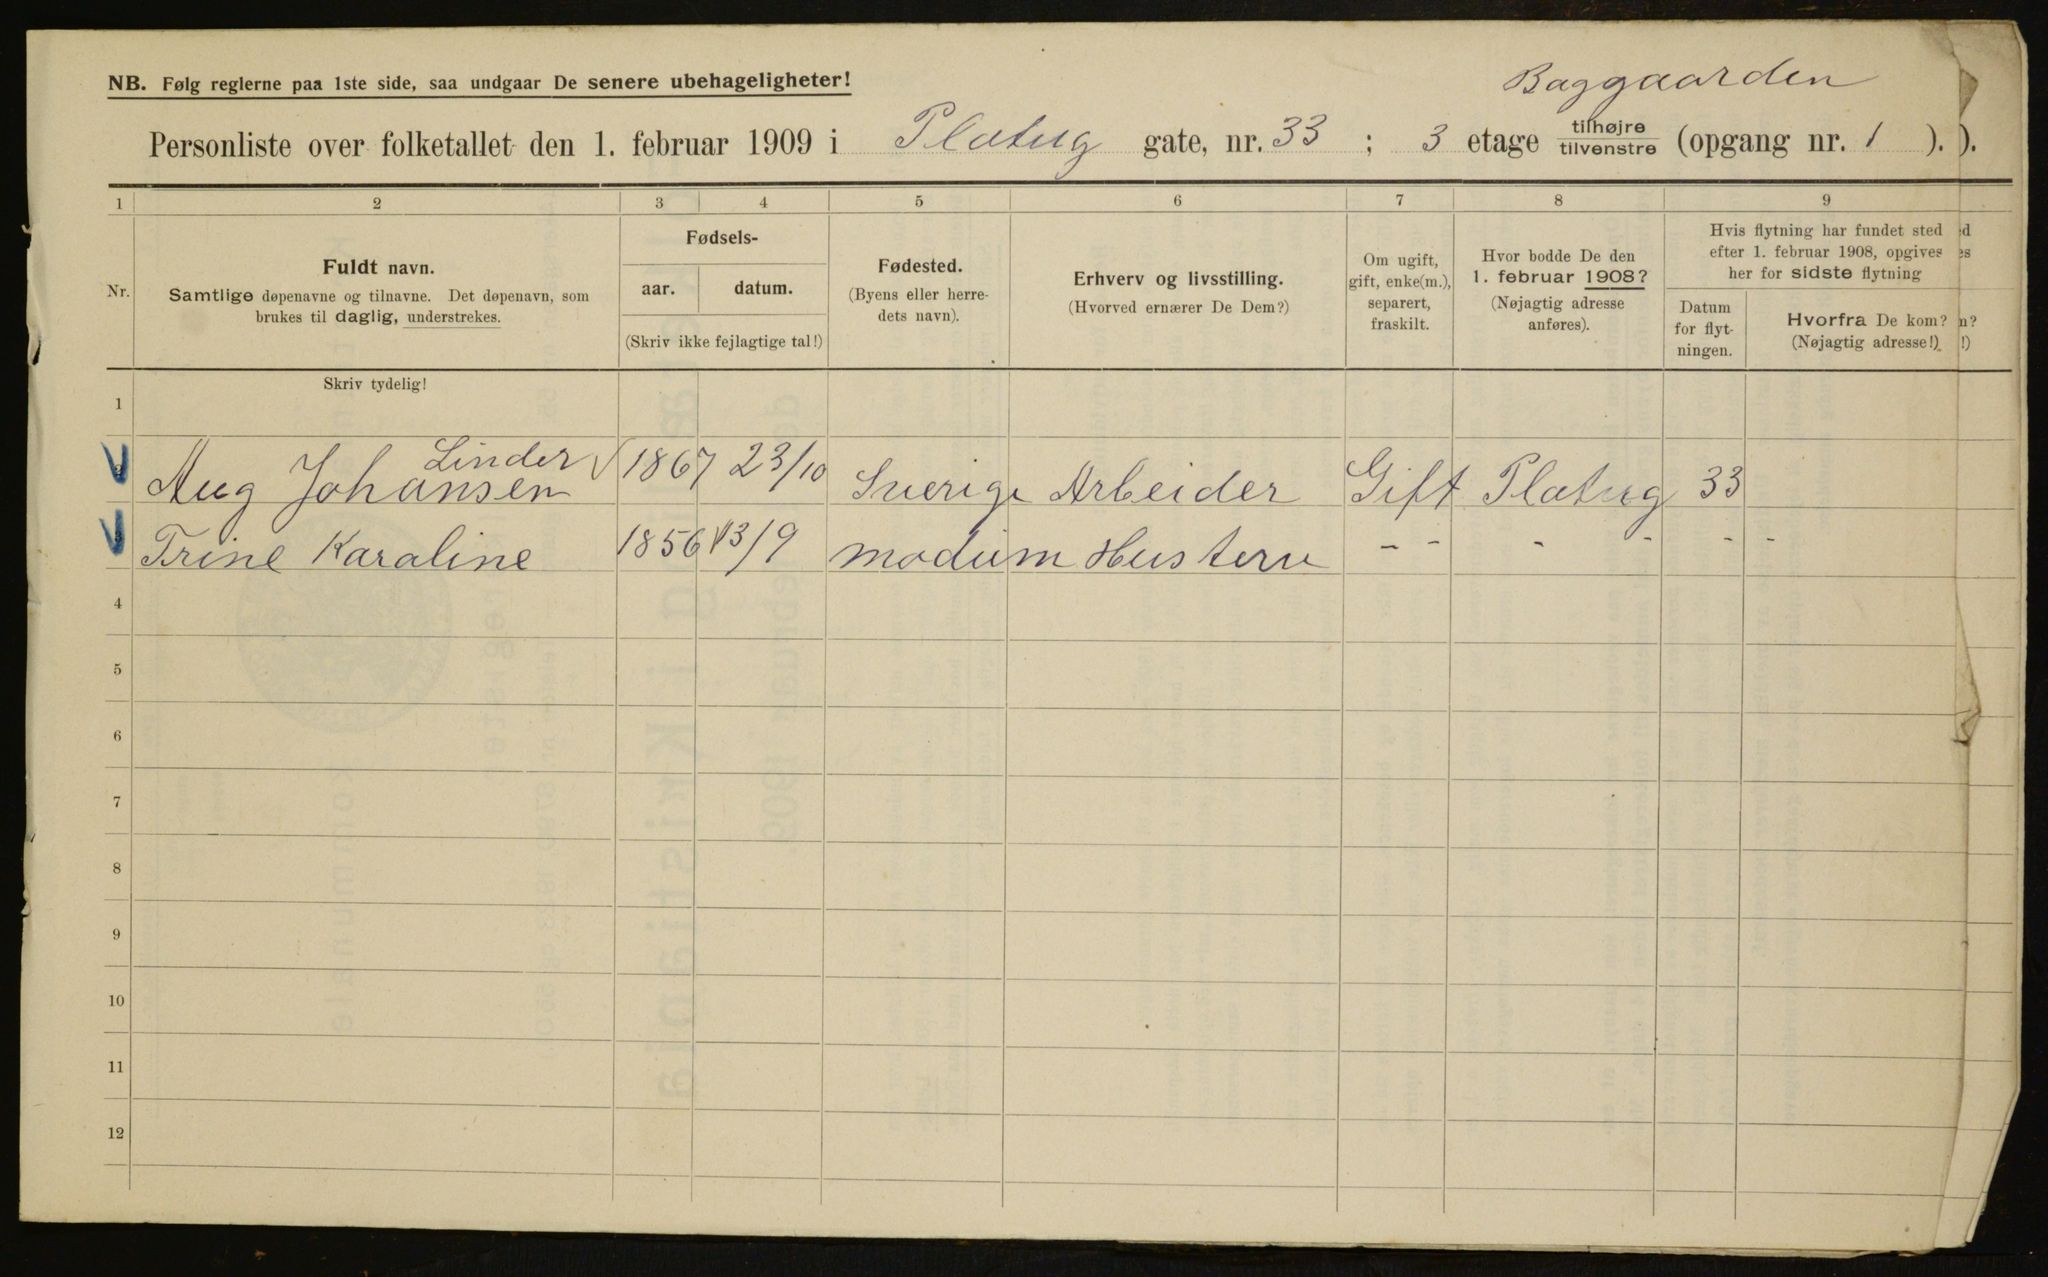 NB. Følg reglerne paa 1ste side, saa undgaar De senere ubehageligheter!
Baggaarden
Personliste over folketallet den 1. februar 1909 i Platug gate, nr. 33 ; 3 etage tilhøjre tilvenstre (opgang nr. 1 ). ).
1 2 3 4 5 6 7 8 9
Nr.
Fuldt navn.
Samtlige døpenavne og tilnavne. Det døpenavn, som
brukes til daglig, understrekes.
Fødsels-
aar. datum.
(Skriv ikke fejlagtige tal!)
Fødested.
(Byens eller herre-
dets navn).
Erhverv og livsstilling.
(Hvorved ernærer De Dem?)
Om ugift,
gift, enke(m.),
separert,
fraskilt.
Hvor bodde De den
1. februar 1908?
(Nøjagtig adresse
anføres).
Hvis flytning har fundet sted
efter 1. februar 1908, opgives
her for sidste flytning
Datum
for flyt-
ningen.
Hvorfra De kom?
(Nøjagtig adresse!)
Skriv tydelig!
1
Linder
2 Aug Johansen 1867 23/10 Sverige Arbeider Gift Platug 33
3 Trine Karaline 1856 13/9 modum Hustern - - - - - -
4
5
6
7
8
9
10
11
12